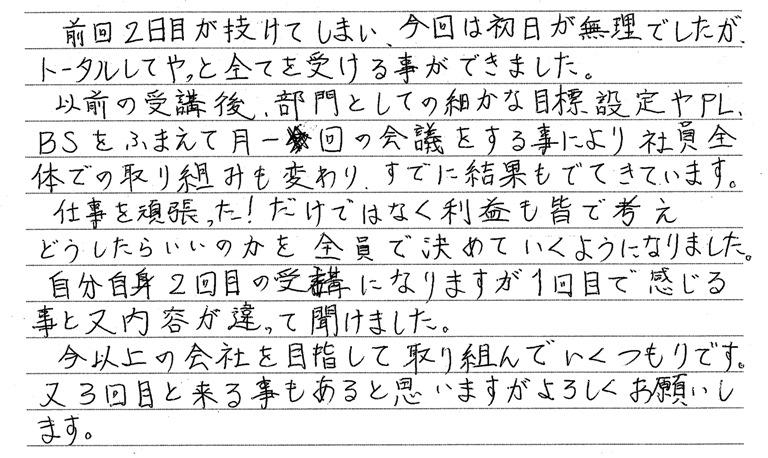 前回2日目が抜けてしまい、今回は初日が無理でしたが、
トータルしてやっと全てを受ける事ができました。
以前の受講後、部門としての細かな目標設定やPL、
BSをふまえて月一回の会議をする事により社員全
体での取り組みも変わり、すでに結果もでてきています。
仕事を頑張った!だけではなく利益も皆で考え
どうしたらいいのかを全員で決めていくようになりました。
自分自身2回目の受講になりますが1回目で感じる
事と又内容が違って聞けました。
今以上の会社を目指して取り組んでいくつもりです。
又3回目と来る事もあると思いますがよろしくお願いし
ます。